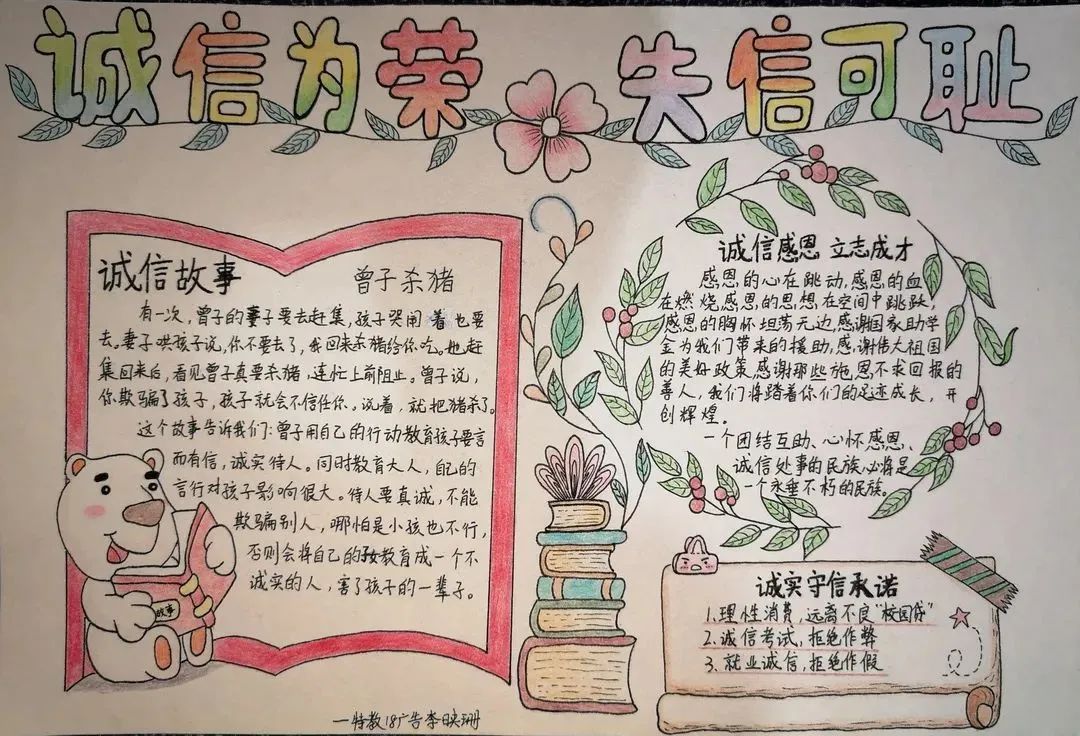 诚信为荣 失信可耻
诚信故事 曾子杀猪
有一次,曾子的妻子要去赶集,孩子哭闹着也要
去。妻子哄孩子说,你不要去了,我回来杀猪给你吃。她赶
集回来后,看见曾子真要杀猪,连忙上前阻止。曾子说,
你欺骗了孩子,孩子就会不信任你。说着,就把猪杀了。
这个故事告诉我们:曾子用自己的行动教育孩子要言
而有信,诚实待人。同时教育大人,自己的
言行对孩子影响很大。待人要真诚,不能
欺骗别人,哪怕是小孩也不行,
否则会将自己的孩教育成一个不
诚实的人,害了孩子的一辈子。
故事
一特教18广告李映珊
诚信感恩 立志成才
感恩的心在跳动,感恩的血
在燃烧,感恩的思想在空间中跳跃,
感恩的胸怀坦荡无边,感谢国家助学
金为我们带来的援助,感谢伟大祖国
的美好政策,感谢那些施恩不求回报的
善人,我们将踏着你们的足迹成长,开
创辉煌。
一个团结互助、心怀感恩、
诚信处事的民族,必将是
一个永垂不朽的民族。
诚实守信承诺
1.理性消费,远离不良"校园贷"
2.诚信考试,拒绝作弊
3.就业诚信,拒绝作假